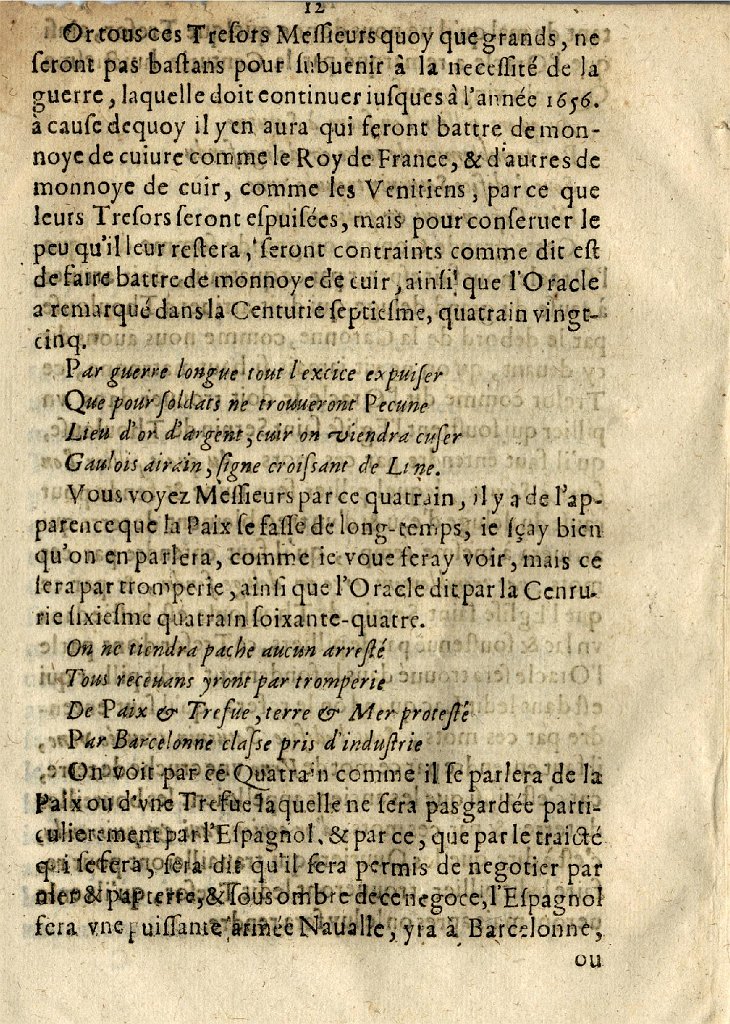 12
Or tous ces Tresors Messieurs quoy que grands, ne
seront pas bastans pour subuenir à la necessité de la
guerre, laquelle doit continuer iusques à l'année 1656.
à cause dequoy il y en aura qui feront battre de mon-
noye de cuiure comme le Roy de France, & d'autres de
monnoye de cuir, comme les Venitiens, parce que
leurs Tresors seront espuisées, mais pour conseruer le
peu qu'il leur restera, seront contraints comme dit est
de faire battre de monnoye de cuir, ainsi que l'Oracle
a remarqué dans la Centurie septiesme, quatrain vingt-
cinq.
Par guerre longue tout l'excice expuiser
Que pour soldats ne trouueront Pecune
Lieu d'or d'argent, cuir on viendra cuser
Gaulois airain, signe croissant de Lune.
Vous voyez Messieurs par ce quatrain, il y a de l'ap-
parence que la Paix se fasse de long-temps, ie sçay bien
qu'on en parlera, comme ie voue feray voir, mais ce
sera par tromperie, ainsi que l'Oracle dit par la Cenru-
rie sixiesme quatrain soixante-quatre.
On ne tiendra pache aucun arresté
Tous receuans yront par tromperie
De Paix & Trefue, terre & Mer protesté
Par Barcelonne classe pris d'industrie
On voit par ce Quatrain comme il se parlera de la
Paix ou d'vne Trefue laquelle ne sera pas gardée parti-
culierement par l'Espagnol, & par ce, que par le traicté
qui se fera, sera dit qu'il sera permis de negotier par
mer & par terre, & sous ombre de ce negoce, l'Espagnol
fera vne puissante armée Naualle, yra à Barcelonne,
ou